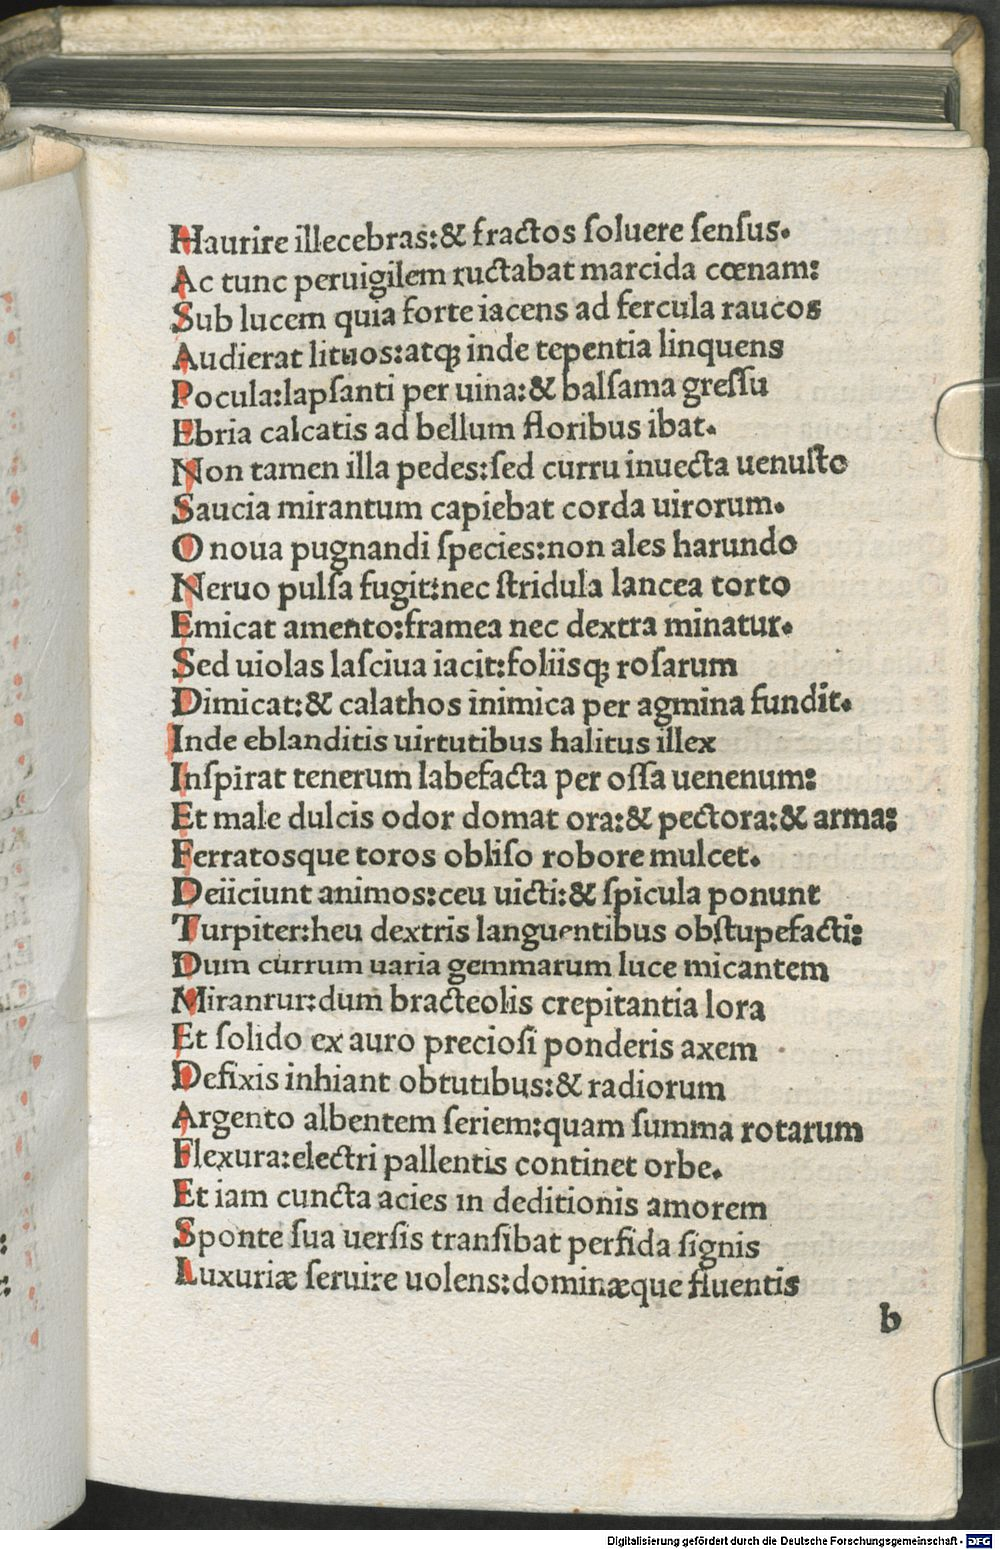 Haurire illecebras:& fractos ſoluere ſenſus.
Ac tunc peruigilem ructabat marcida cœnam:
Sub lucem quia forte iacens ad fercula raucos
Audierat lituos:atq; inde tepentia linquens
Pocula:lapſanti per uina:& balſama greſſu
Ebria calcatis ad bellum floribus ibat.
Non tamen illa pedes:ſed curru inuecta uenuſto
Saucia mirantum capiebat corda uirorum.
O noua pugnandi ſpecies:non ales harundo
Neruo pulſa fugit:nec ſtridula lancea torto
Emicat amento:framea nec dextra minatur.
Sed uiolas laſciua iacit:foliiſq; roſarum
Dimicat:& calathos inimica per agmina fundit.
Inde eblanditis uirtutibus halitus illex
Inſpirat tenerum labefacta per oſſa uenenum:
Et male dulcis odor domat ora:& pectora:& arma:
Ferratosque toros obliſo robore mulcet.
Deiiciunt animos:ceu uicti:& ſpicula ponunt
Turpiter:heu dextris languentibus obſtupefacti:
Dum currum uaria gemmarum luce micantem
Mirantur:dum bracteolis crepitantia lora
Et ſolido ex auro precioſi ponderis axem
Defixis inhiant obtutibus:& radiorum
Argento albentem ſeriem:quam ſumma rotarum
Flexura:electri pallentis continet orbe.
Et iam cuncta acies in deditionis amorem
Sponte ſua uerſis tranſibat perfida ſignis
Luxuriæ ſeruire uolens:dominæque fluentis
b
Digitalisierung gefördert durch die Deutsche Forschungsgemeinschaft - DFG